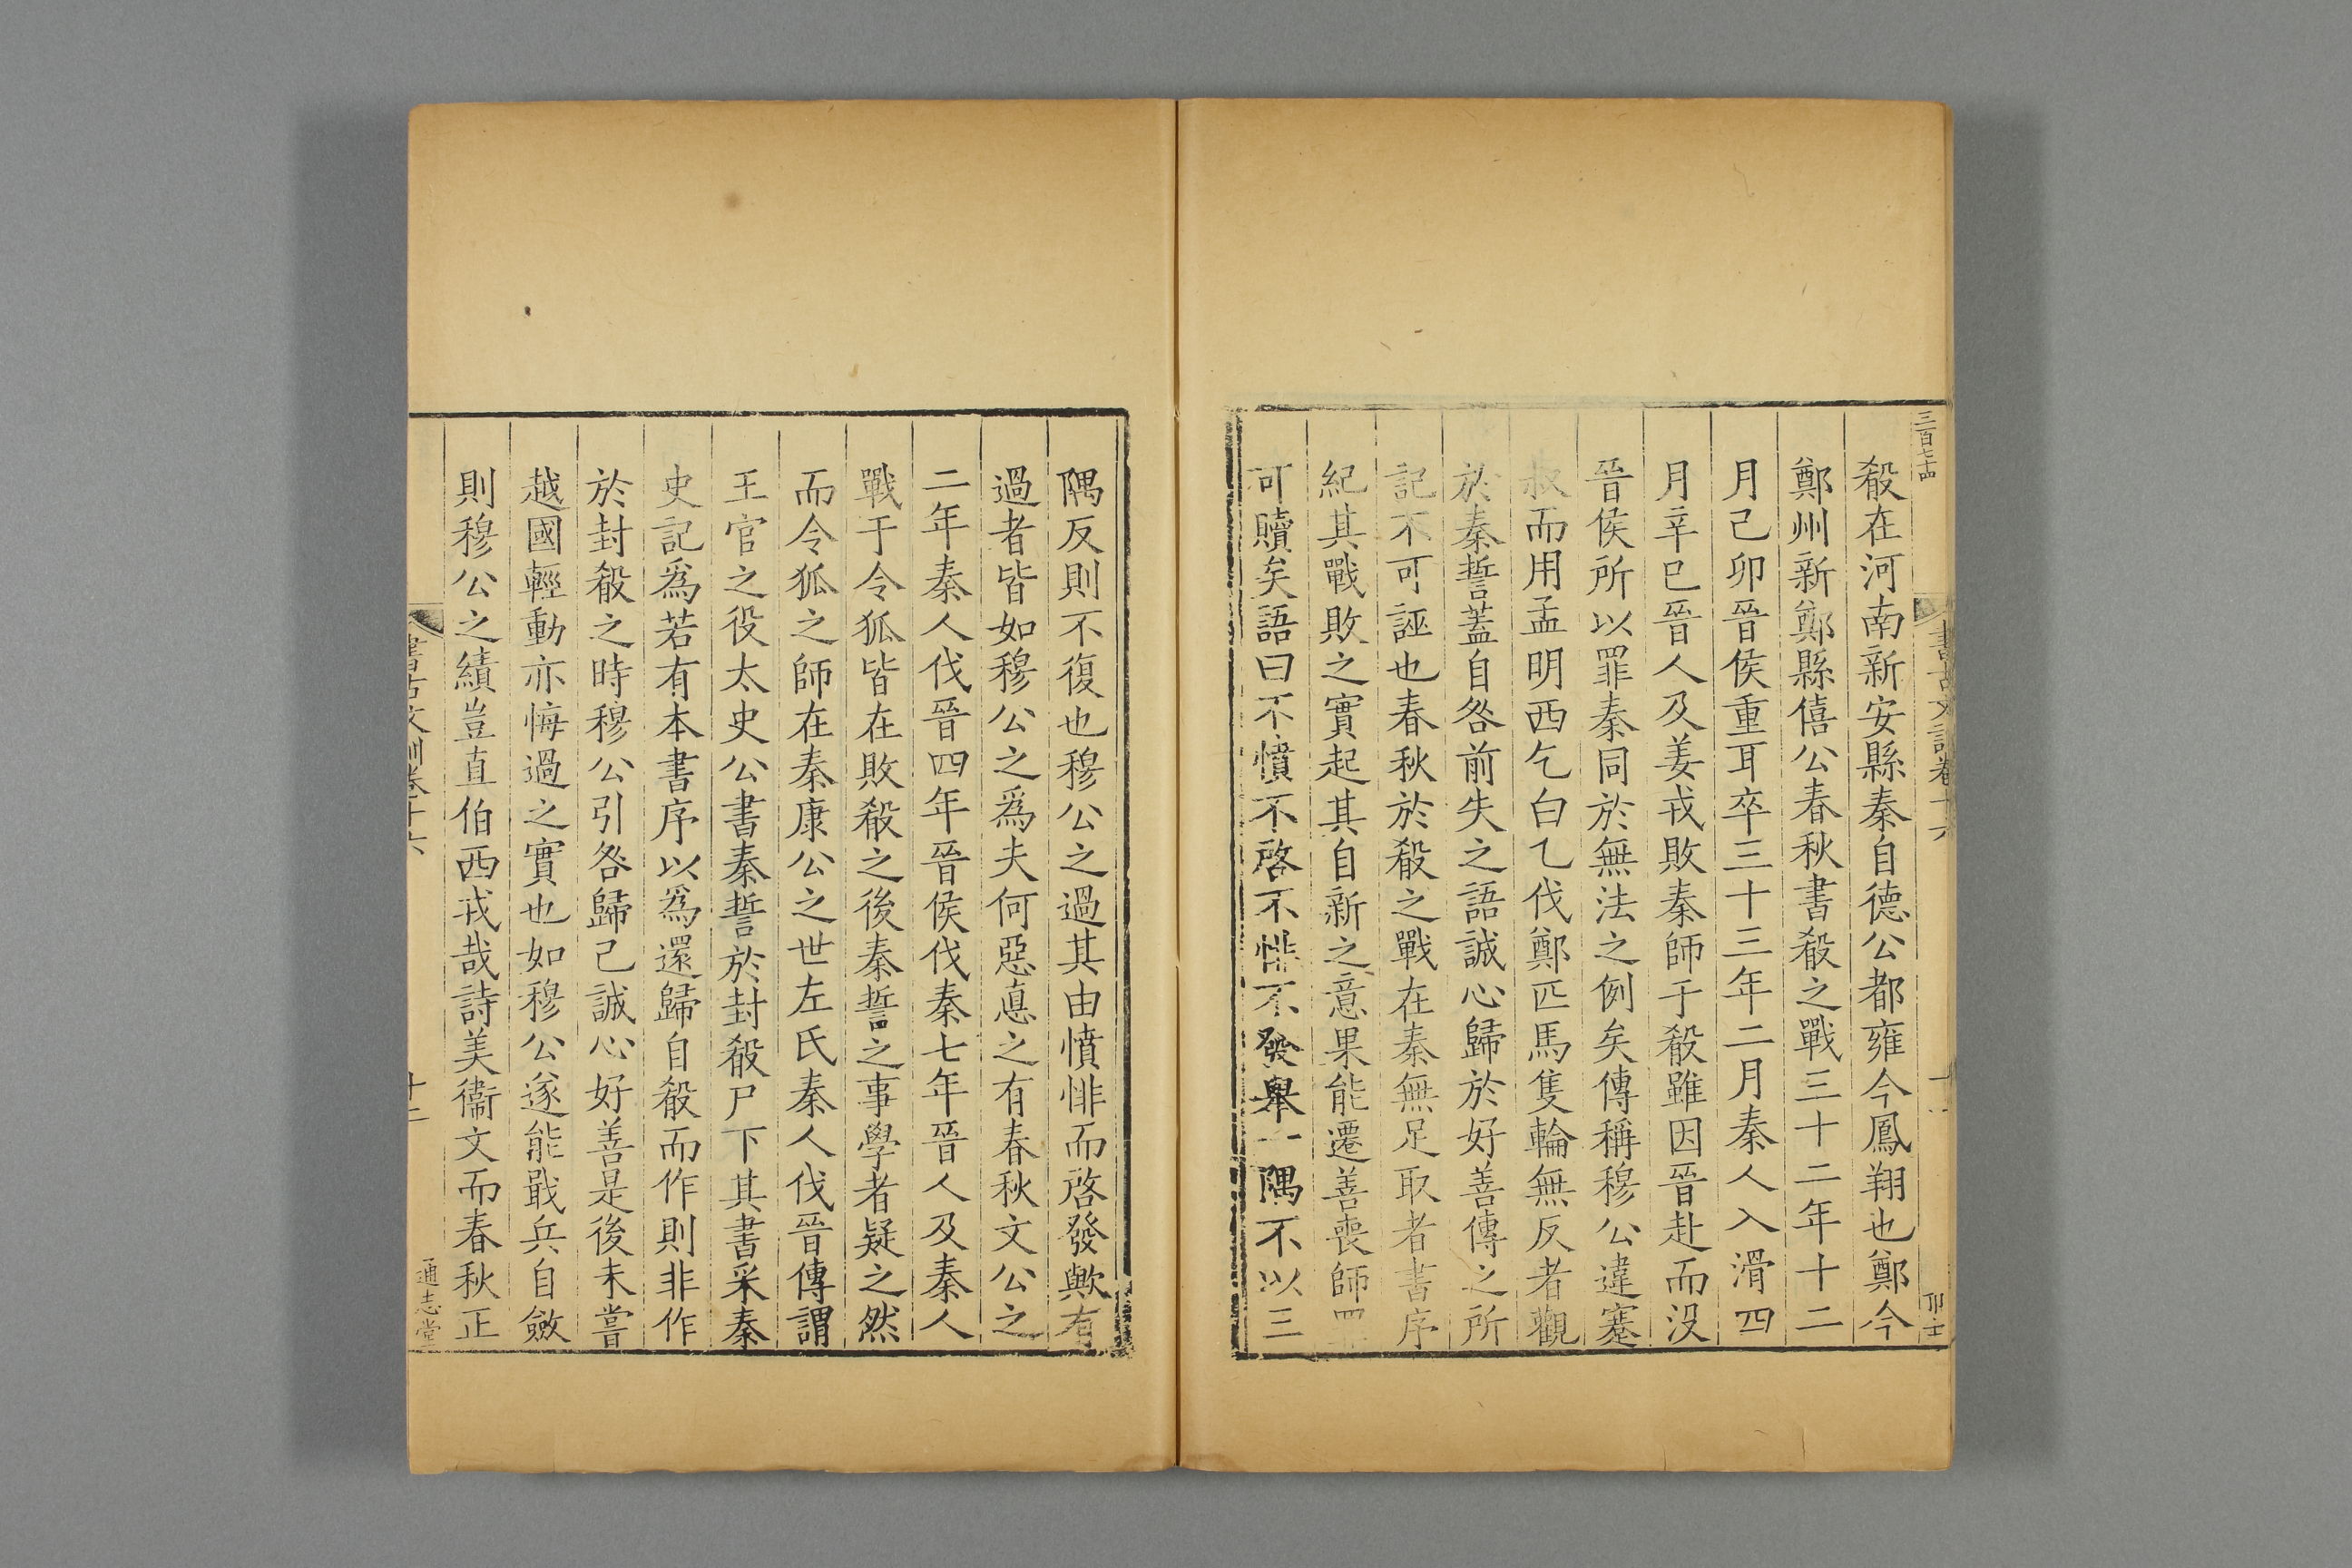 三百七十四
書古文訓卷十六
殽在河南新安縣秦自德公都雍今鳳翔也鄭今
鄭州新鄭縣僖公春秋書殽之戰三十二年十二
月己卯晉侯重耳卒三十三年二月秦人入滑四
月辛巳晉人及姜戎敗秦師于殽雖因晉赴而没
晉侯所以罪秦同於無法之例矣傳稱穆公違蹇
叔而用孟明西乞白乙伐鄭匹馬隻輪無反者觀
於秦誓蓋自咎前失之語誠心歸於好善傳之所
記不可誣也春秋於殽之戰在秦無足取者書序
紀其戰敗之實起其自新之意果能遷善喪師罪
可贖矣語曰不憤不啓不悱不發舉一隅不以三
隅反則不復也穆公之過其由憤悱而啓發歟有
過者皆如穆公之爲夫何惡悳之有春秋文公之
二年秦人伐晉四年晉侯伐秦七年晉人及秦人
戰于令狐皆在敗殽之後秦誓之事學者疑之然
而令狐之師在秦康公之世左氏秦人伐晉傳謂
王官之役太史公書秦誓於封殽尸下其書采秦
史記爲若有本書序以爲還歸自殽而作則非作
於封殽之時穆公引咎歸己誠心好善是後未嘗
越國輕動亦悔過之實也如穆公遂能戢兵自斂
則穆公之績豈直伯西戎哉詩美衞文而春秋正
書古文訓卷十六
十二
通志堂